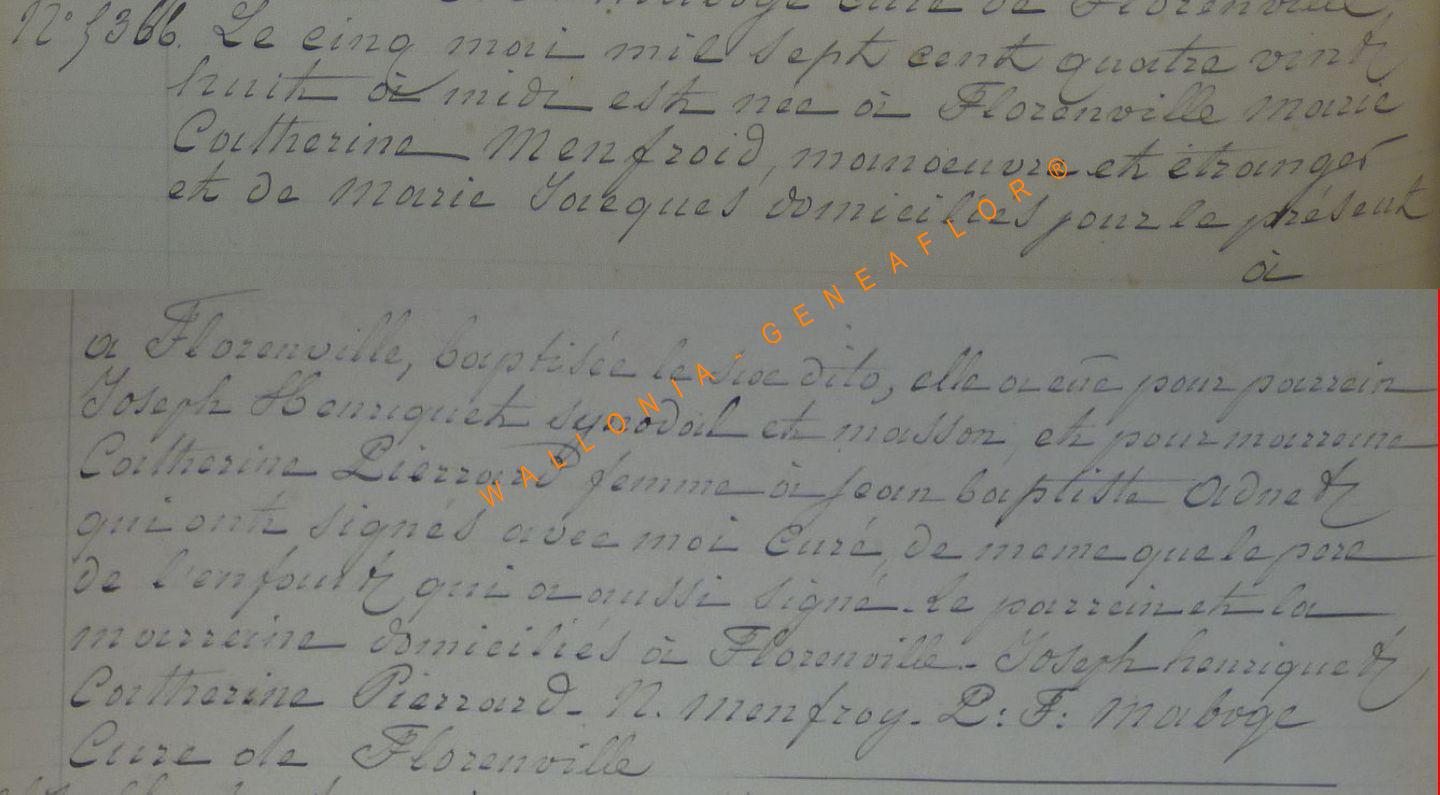 Maboge curé de Florenville,
N° 5366. Le cinq mai mil sept cent quatre vint
huit à midi est nee à Florenville marie
Catherine Menfroid, manoeuvre et étranger
et de marie Jacques domiciliés pour le présent
à
a Florenville, baptisée le sus dito, elle a eue pour parrein
Joseph Henriquet synodal et masson, et pour marreine
Catherine Pierrard femme à jean baptiste Adnet
qui ont signés avec moi Curé, de meme que le pere
de l'enfant qui a aussi signé. Le parrein et la
marreine domiciliés à Florenville. Joseph henriquet
Catherine Pierrard. N. menfroy. P: F: maboge
Cure de Florenville
WALLONIA - GENEAFLOR ®